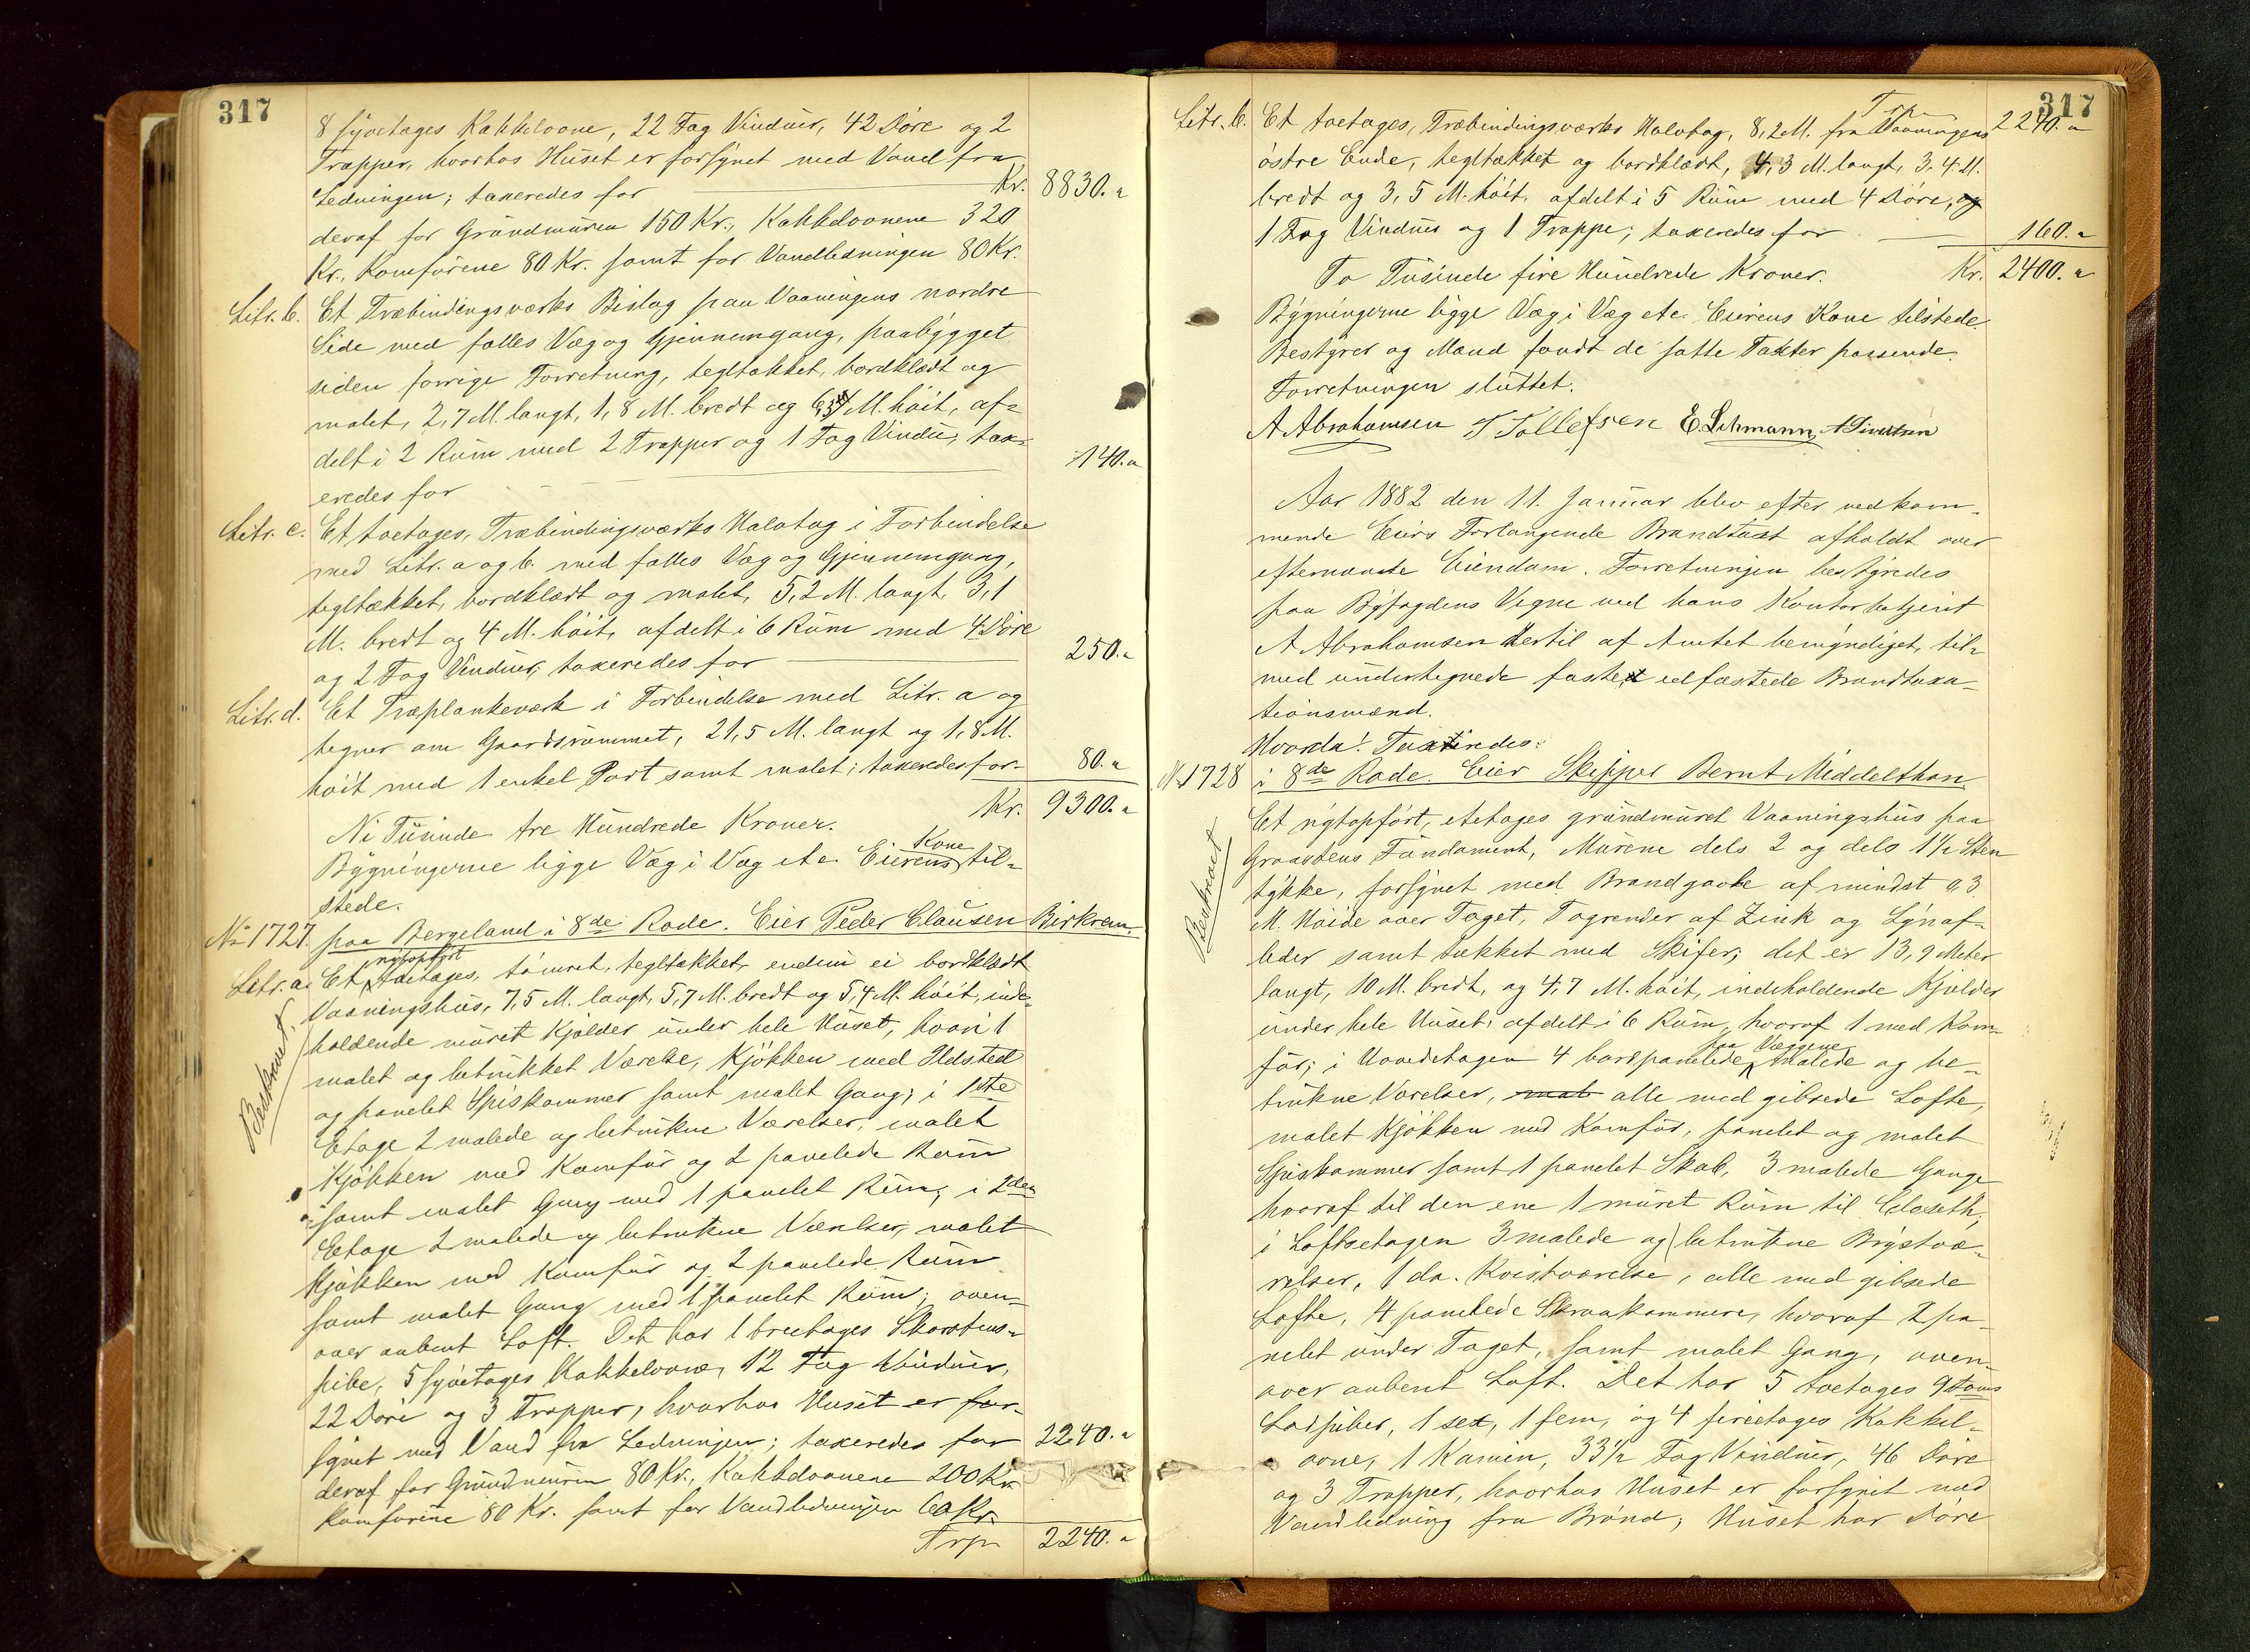 317
8 fyretages Kakkelovne, 22 Fag Vinduer, 42 Döre og 2
Trapper, hvorhos Huset er forsynet med Vand fra
Ledningen; taxeredes for Kr. 8830.„
deraf for Grundmuren 150 Kr., Kakkelovnene 320
Kr., Komfurene 80 Kr. samt for Vandledningen 80 Kr.
Litr. b. Et Træbindingsværks Bislag paa Vaaningens nordre
Side med fælles Væg og Gjennemgang, paabygget
siden forrige Forretning, tegltækket, bordklædt og
malet, 2,7 M. langt, 1,8 M. bredt og M. höit, af-
delt i 2 Rum med 2 Trapper og 1 Fag Vindu; tax-
eredes for 140.„
Litr. c. Et toetages, Træbindingsværks Halvtag i Forbindelse
med Litr. a og b. med fælles Væg og Gjennemgang,
tegltækket, bordklædt og malet, 5,2 M. langt, 3,1
M. bredt og 4 M. höit, afdelt i 6 Rum med 4 Döre
og 2 Fag Vinduer; taxeredes for 250.„
Litr. d. Et Træplankeværk i Forbindelse med Litr. a og
tegner om Gaardsrummet, 21,5 M. langt og 1,8 M.
höit med 1 enkel Port samt malet; taxeredes for 80.„
Ni Tusinde tre Hundrede Kroner. Kr. 9300.„
Bygningerne ligge Væg i Væg etc. Eierens Kone til-
stede.
No 1727. paa Bergeland i 8de Rode. Eier Peder Clausen Birkrem.
Litr. a. Et nyopfört toetages, tömret, tegltækket, endnu ei bordklædt
Vaaningshus, 7,5 M. langt, 5,7 M. bredt og 5,4 M. höit, inde-
Beskrevet.
holdende muret Kjælder under hele Huset, hvori 1
malet og betrukket Værelse, Kjökken med Ildsted
og panelet Spiskammer samt malet Gang; i 1ste
Etage 2 malede og betrukne Værelser, malet
Kjökken med Komfur og 2 panelede Rum
samt malet Gang med 1 panelet Rum; i 2den
Etage 2 malede og betrukne Værelser, malet
Kjökken med Komfur og 2 panelede Rum
samt malet Gang med 1 panelet Rum; oven-
over aabent Loft. Det har 1 treetages Skorstens-
pibe, 5 fyretages Kakkelovne, 12 Fag Vinduer,
22 Döre og 3 Trapper, hvorhos Huset er for-
synet med Vand fra Ledningen; taxeredes for 2240.„
deraf for Grundmuren 80 Kr., Kakkelovnene 200 Kr.
Komfurene 80 Kr. samt for Vandledningen 60 Kr.
Trp. 2240.„
317
Trp. 2240.„
Litr. b. Et toetages, Træbindingsværks Halvtag, 8,2 M. fra Vaaningens
östre Ende, tegltækket og bordklædt, 4,3 M. langt, 3,4 M.
bredt og 3,5 M. höit, afdelt i 5 Rum med 4 Döre, og
1 Fag Vindu og 1 Trappe; taxeredes for 160.„
To Tusinde fire Hundrede Kroner. Kr. 2400.„
Bygningerne ligge Væg i Væg etc. Eierens Kone tilstede.
Bestyrer og Mænd fandt de satte Taxter passende.
Forretningen sluttet.
A Abrahamsen T Tollefsen E. Lehmann,
Aar 1882 den 11. Januar blev efter vedkom-
mende Eiers Forlangende Brandtaxt afholdt over
efternævnte Eiendom. Forretningen bestyredes
paa Byfogdens Vegne ved hans Kontorbetjent
A Abrahamsen dertil af Amtet bemyndiget, til-
med undertegnede faste, edfæstede Brandtaxa-
tionsmænd.
Hvorda! Taxeredes:
No 1728 i 8de Rode. Eier Skipper Bernt Middelthon.
Et nyopfört, etetages grundmuret Vaaningshus paa
Graastens Fundament, Murene dels 2 og dels 1 1/2 Sten
Beskrevet
tykke, forsynet med Brandgavle af mindst 0,3
M. Höide over Taget, Tagrender af Zink og Lynaf-
leder samt tækket med Skifer; det er 13,9 Meter
langt, 10 M. bredt, og 4,7 M. höit, indeholdende Kjælder
under hele Huset, afdelt i 6 Rum, hvoraf 1 med Kom-
fur; i Hovedetagen 4 panelede, paa Væggene malede og be-
trukne Værelser, alle med gibsede Lofte,
malet Kjökken med Komfur, panelet og malet
Spiskammer samt 1 panelet Skab, 3 malede Gange
hvoraf til den ene 1 muret Rum til Closeth;
i Loftsetagen 3 malede og betrukne Brystvæ-
relser, 1 do. Kvistværelse, alle med gibsede
Lofte, 4 panelede Skraakammere, hvoraf 2 pa-
nelet under Taget, samt malet Gang, oven-
over aabent Loft. Det har 5 toetages 9 Toms
Ladpiber, 1 sex, 1 fem, og 4 fireetages Kakkel-
ovne, 1 Kamin, 33 1/2 Fag Vinduer, 46 Döre
og 3 Trapper, hvorhos Huset er forsynet med
Vandledning fra Brönd; Huset har Döre